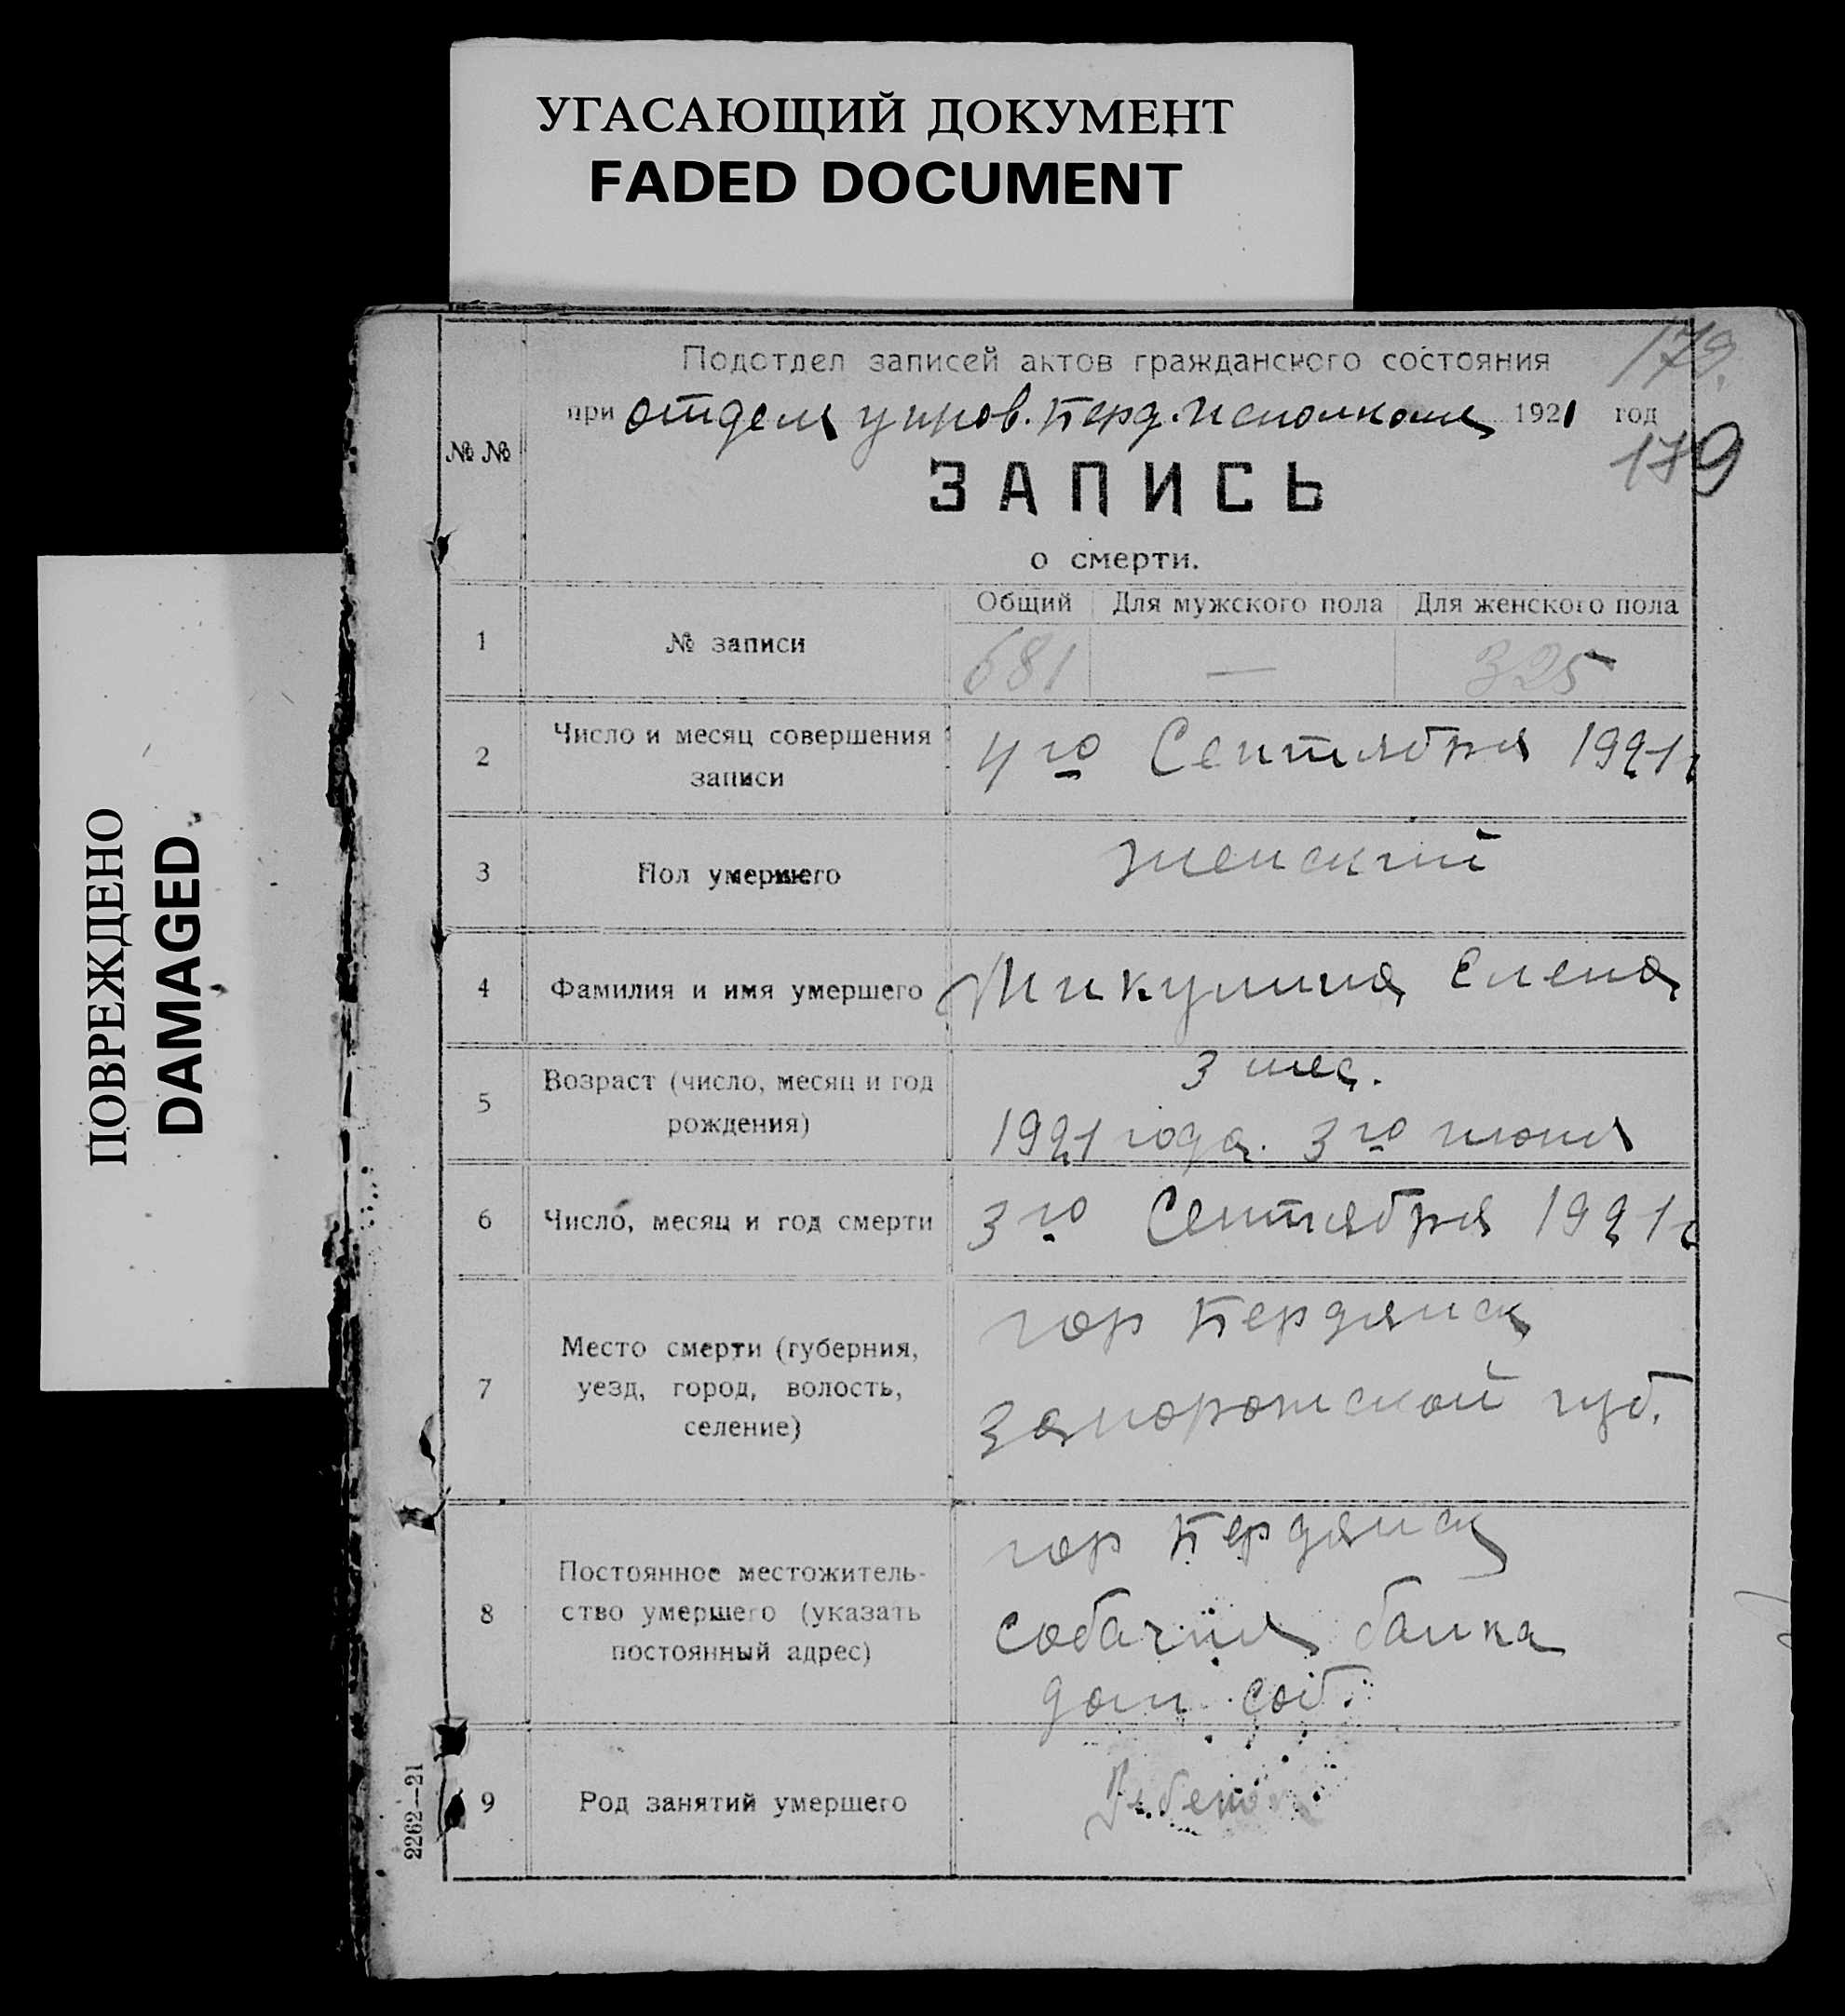 УГАСАЮЩИЙ ДОКУМЕНТ
FADED DOCUMENT
ПОВРЕЖДЕНО
DAMAGED
179.
Подотдел записей актов гражданского состояния
при отдела управ. Берд. Исполкома 1921 год
179
№ №
ЗАПИСЬ
о смерти.
Общий Для мужского пола Для женского пола
1 № записи 681 — 325
2 Число и месяц совершения записи 4го Сентября 1921 г
3 Пол умершего женский
4 Фамилия и имя умершего Микулина Елена
5 Возраст (число, месяц и год рождения) 3 мес.
1921 года. 3го июня
6 Число, месяц и год смерти 3го Сентября 1921 г
7 Место смерти (губерния, уезд, город, волость, селение) гор Бердянск
Запорожской губ.
8 Постоянное местожитель-
ство умершего (указать
постоянный адрес)
гор Бердянск
Собачия балка
дом соб.
9 Род занятий умершего
2262—21